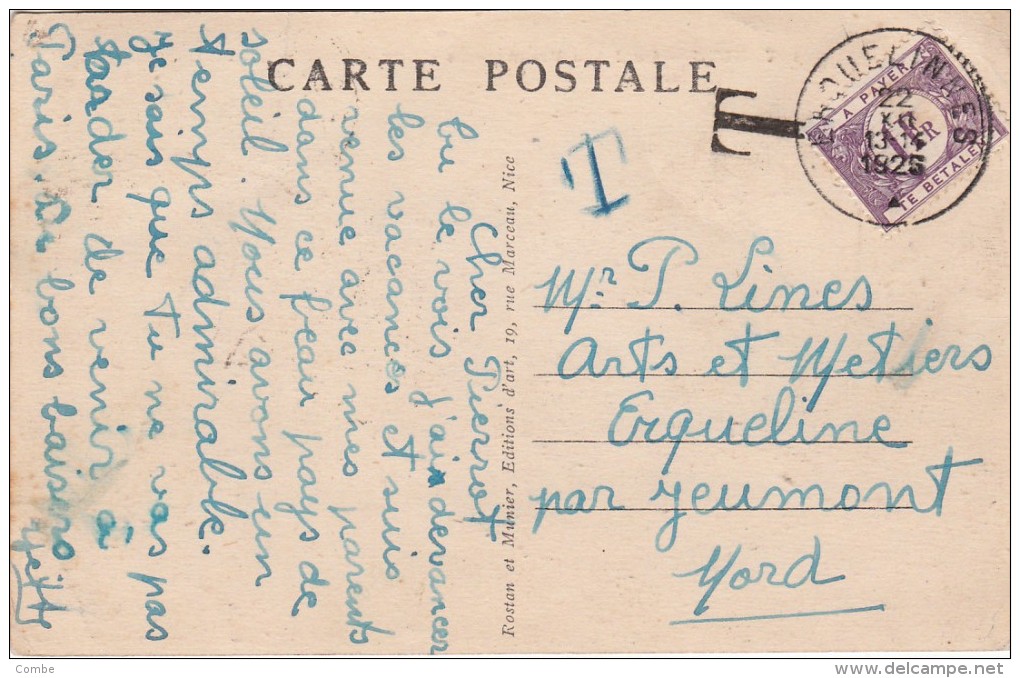 CARTE POSTALE
Cher Pierrot
tu le vois j'ai devancer
les vacances et suis
venue avec mes parents
dans ce beau pays de
soleil. Nous avons un
temps admirable.
Je sais que tu ne vas pas
tarder de venir à
Paris. bons baisers
Rostan et Munier, Editions d'art, 19, rue Marceau, Nice
T
T
ERQUELINNES
22
XII
13
1925
A PAYER
1 FR
TE BETALEN
Mr P. Lines
Arts et Metiers
Erqueline
par Jeumont
Nord
Combe
delcampe.net